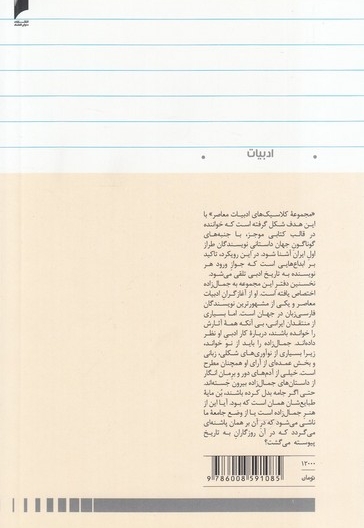 ادبیات
«مجموعهٔ کلاسیک‌های ادبیات معاصر» با
این هدف شکل گرفته است که خواننده
در قالب کتابی موجز، با جنبه‌های
گوناگون جهان داستانی نویسندگان طراز
اول ایران آشنا شود. در این رویکرد، تاکید
بر ابداع‌هایی است که جواز ورود هر
نویسنده به تاریخ ادبی تلقی می‌شود.
نخستین دفتر این مجموعه به جمال‌زاده
اختصاص یافته است. او از آغازگران ادبیات
معاصر و یکی از مشهورترین نویسندگان
فارسی‌زبان در جهان است. اما بسیاری
از منتقدان ایرانی، بی آنکه همهٔ آثارش
را خوانده باشند، دربارهٔ کار ادبی او نظر
داده‌اند. جمال‌زاده را باید از نو خواند،
زیرا بسیاری از نوآوری‌های شکلی، زبانی
و بخش عمده‌ای از آرای او همچنان مطرح
است. خیلی از آدم‌های دور و برمان انگار
از داستان‌های جمال‌زاده بیرون جَسته‌اند.
حتی اگر جامه بدل کرده باشند، بُن مایهٔ
طبایع‌شان همان است که بود. آیا این از
هنر جمال‌زاده است یا از وضع جامعهٔ ما
ناشی می‌شود که در آن بر همان پاشنه‌ای
می‌گردد که در آن روزگاران به تاریخ
پیوسته می‌گشت؟
۱۲۰۰۰
تومان
9 786008 591085